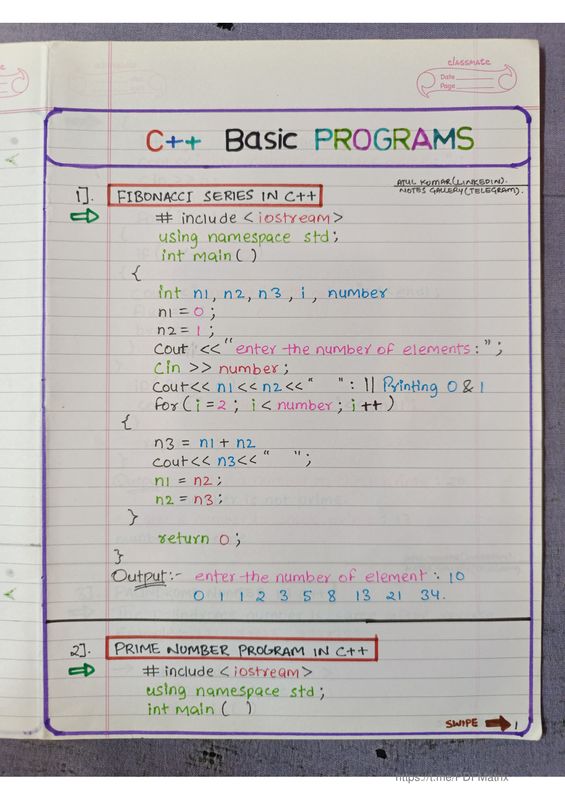 classmate
Date
Page
C++ Basic PROGRAMS
ATUL KUMAR (LINKEDIN).
NOTES GALLERY (TELEGRAM).
1]. FIBONACCI SERIES IN C++
# include <iostream>
using namespace std;
int main( )
{
int n1, n2, n3, i, number
n1 = 0;
n2 = 1;
Cout <<"enter the number of elements:";
Cin >> number;
Cout<< n1<<n2<<"   ": || Printing 0 & 1
for(i=2; i< number; i++)
{
n3 = n1 + n2
cout<< n3<<"   ";
n1 = n2;
n2 = n3;
}
return 0;
}
Output:- enter the number of element : 10
0 1 1 2 3 5 8 13 21 34.
2]. PRIME NUMBER PROGRAM IN C++
# include <iostream>
using namespace std;
int main ( )
SWIPE 1
https://t.me/PDFMatrix